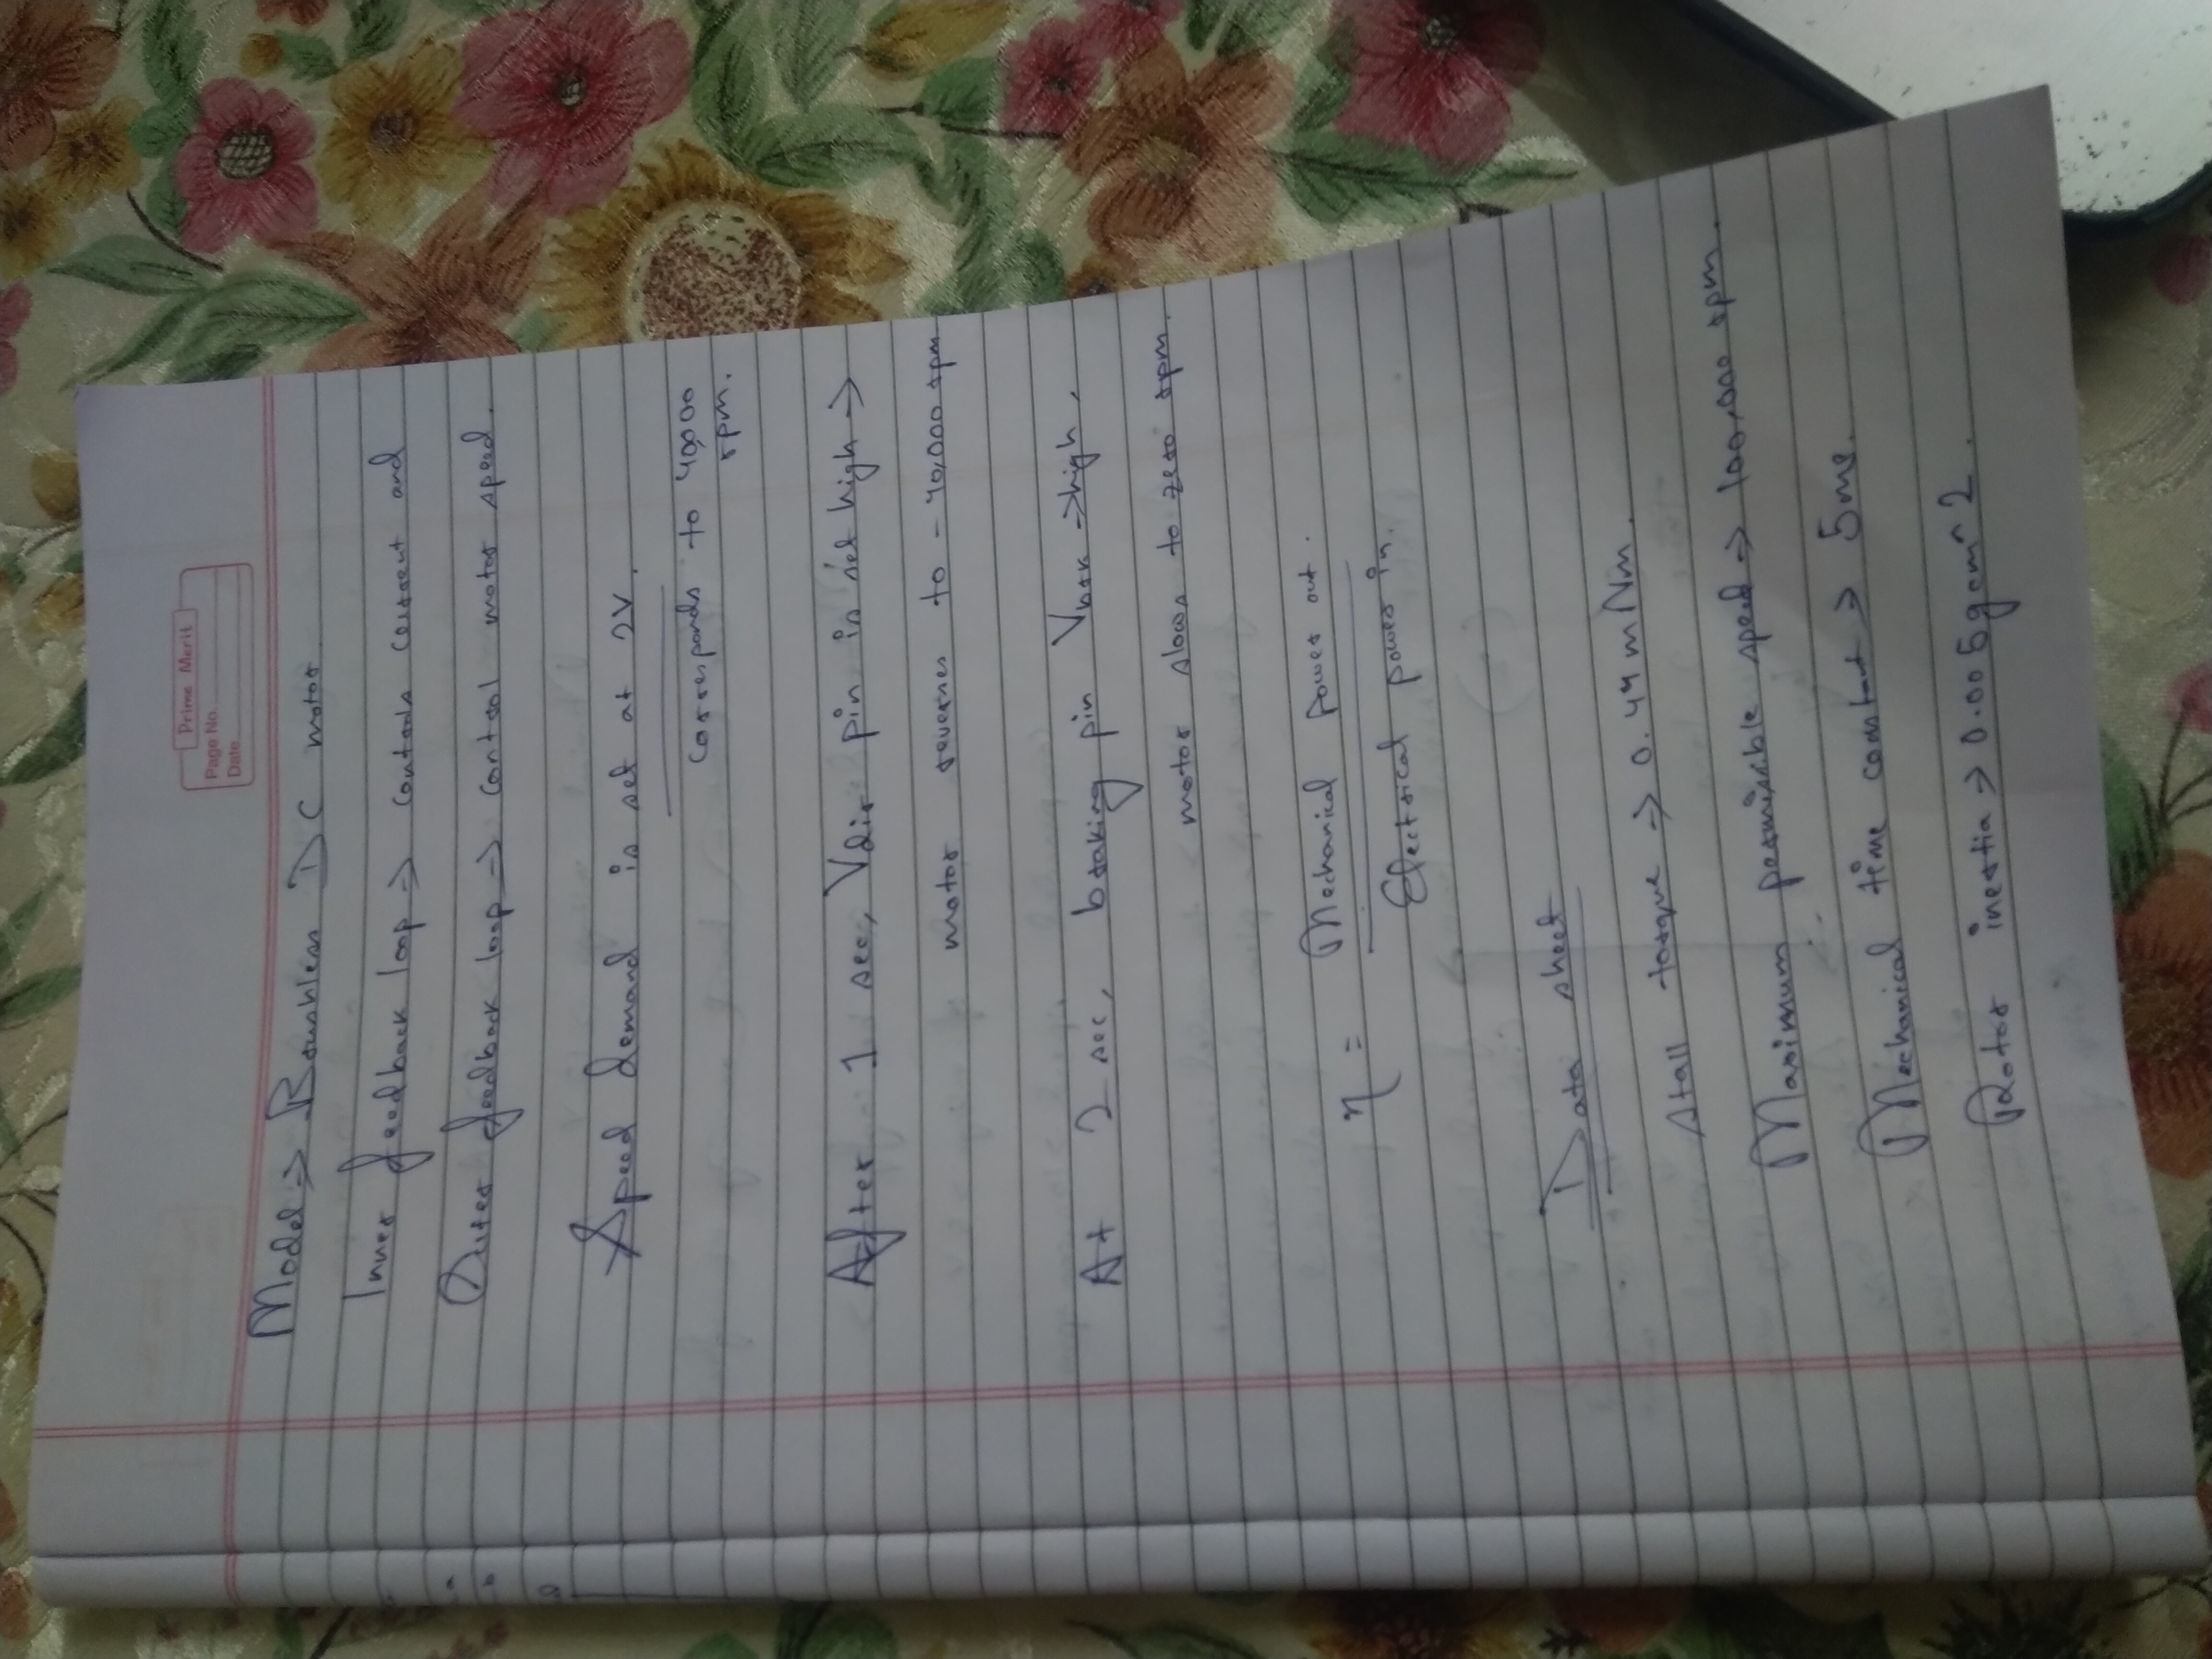 Prime Merit
Page No.
Date
Model => Brushless DC motor.
Inner feedback loop => controls current and
Outer feedback loop => control motor speed.
Speed demand is set at 2V.
corresponds to 40,000
rpm.
After 1 sec, Vdir pin is set high →
motor reverses to - 40,000 rpm
At 2 sec, braking pin Vbrk → high,
motor slows to zero rpm.
η = Mechanical power out.
Electrical power in.
Data sheet
Stall torque → 0.44 mNm.
Maximum permissible speed → 100,000 rpm.
Mechanical time constant → 5ms.
Rotor inertia → 0.005gcm^2.